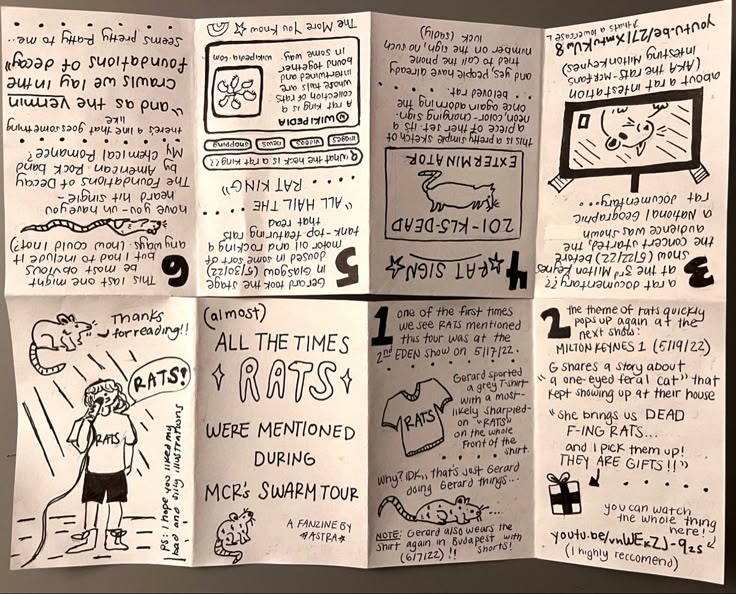 (almost)
ALL THE TIMES
RATS
WERE MENTIONED
DURING
MCR's SWARM TOUR
A FANZINE BY
★ASTRA★
1
one of the first times
we see RATS mentioned
this tour was at the
2nd EDEN show on 5/17/22.
Gerard sported
a grey T-shirt
with a most-
likely sharpied-
on "RATS"
on the whole
front of the
shirt.
RATS
why? IDK, that's just Gerard
doing Gerard things...
NOTE: Gerard also wears the
shirt again in Budapest with
(6/7/22) !! shorts!
2
the theme of rats quickly
pops up again at the
next show:
MILTON KEYNES 1 (5/19/22)
G shares a story about
"a one-eyed feral cat" that
kept showing up at their house
"She brings us DEAD
F-ING RATS...
and I pick them up!
THEY ARE GIFTS!!"
you can watch
the whole thing
here!
(I highly reccomend)
3
a rat documentary??
at the 3rd Milton Keynes
concert (5/22/22) before
the show started, the
audience was shown
a National Geographic
rat documentary...
about a rat infestation
(AKA the rats
infesting Milton Keynes)
thats a lowercase L
4
★RAT SIGN★
ZOI-KLS-DEAD
EXTERMINATOR
this is a pretty simple sketch of
a piece of their set: it's a
neon, color-changing sign.
once again adorning the
beloved rat.
and yes, people have already
tried to call the phone
number on the sign, no such
luck (sadly)
5
Gerard took the stage
in Glasgow (5/30/22)
doused in some sort of
motor oil and rocking a
tank-top featuring rats
that read
"ALL HAIL THE
RAT KING"
what the heck is a rat king??
images
videos
news
shopping
WIKIPEDIA
A rat king is a
collection of rats
whose tails are
intertwined and
bound together
in some way.
wikipedia.com
The More You Know☆
6
This last one might
be most obvious
but I had to include it
anyways (how could I not?)
have you- un- have you
heard hit single-
The Foundations of Decay
by American Rock band
My Chemical Romance?
there's a line that goes something
like
"and as the vermin
crawls we lay in the
foundations of decay"
Seems pretty Ratty to me...
Thanks
for reading!!
RATS!
RATS
PS: I hope you liked my
bad and silly illustrations